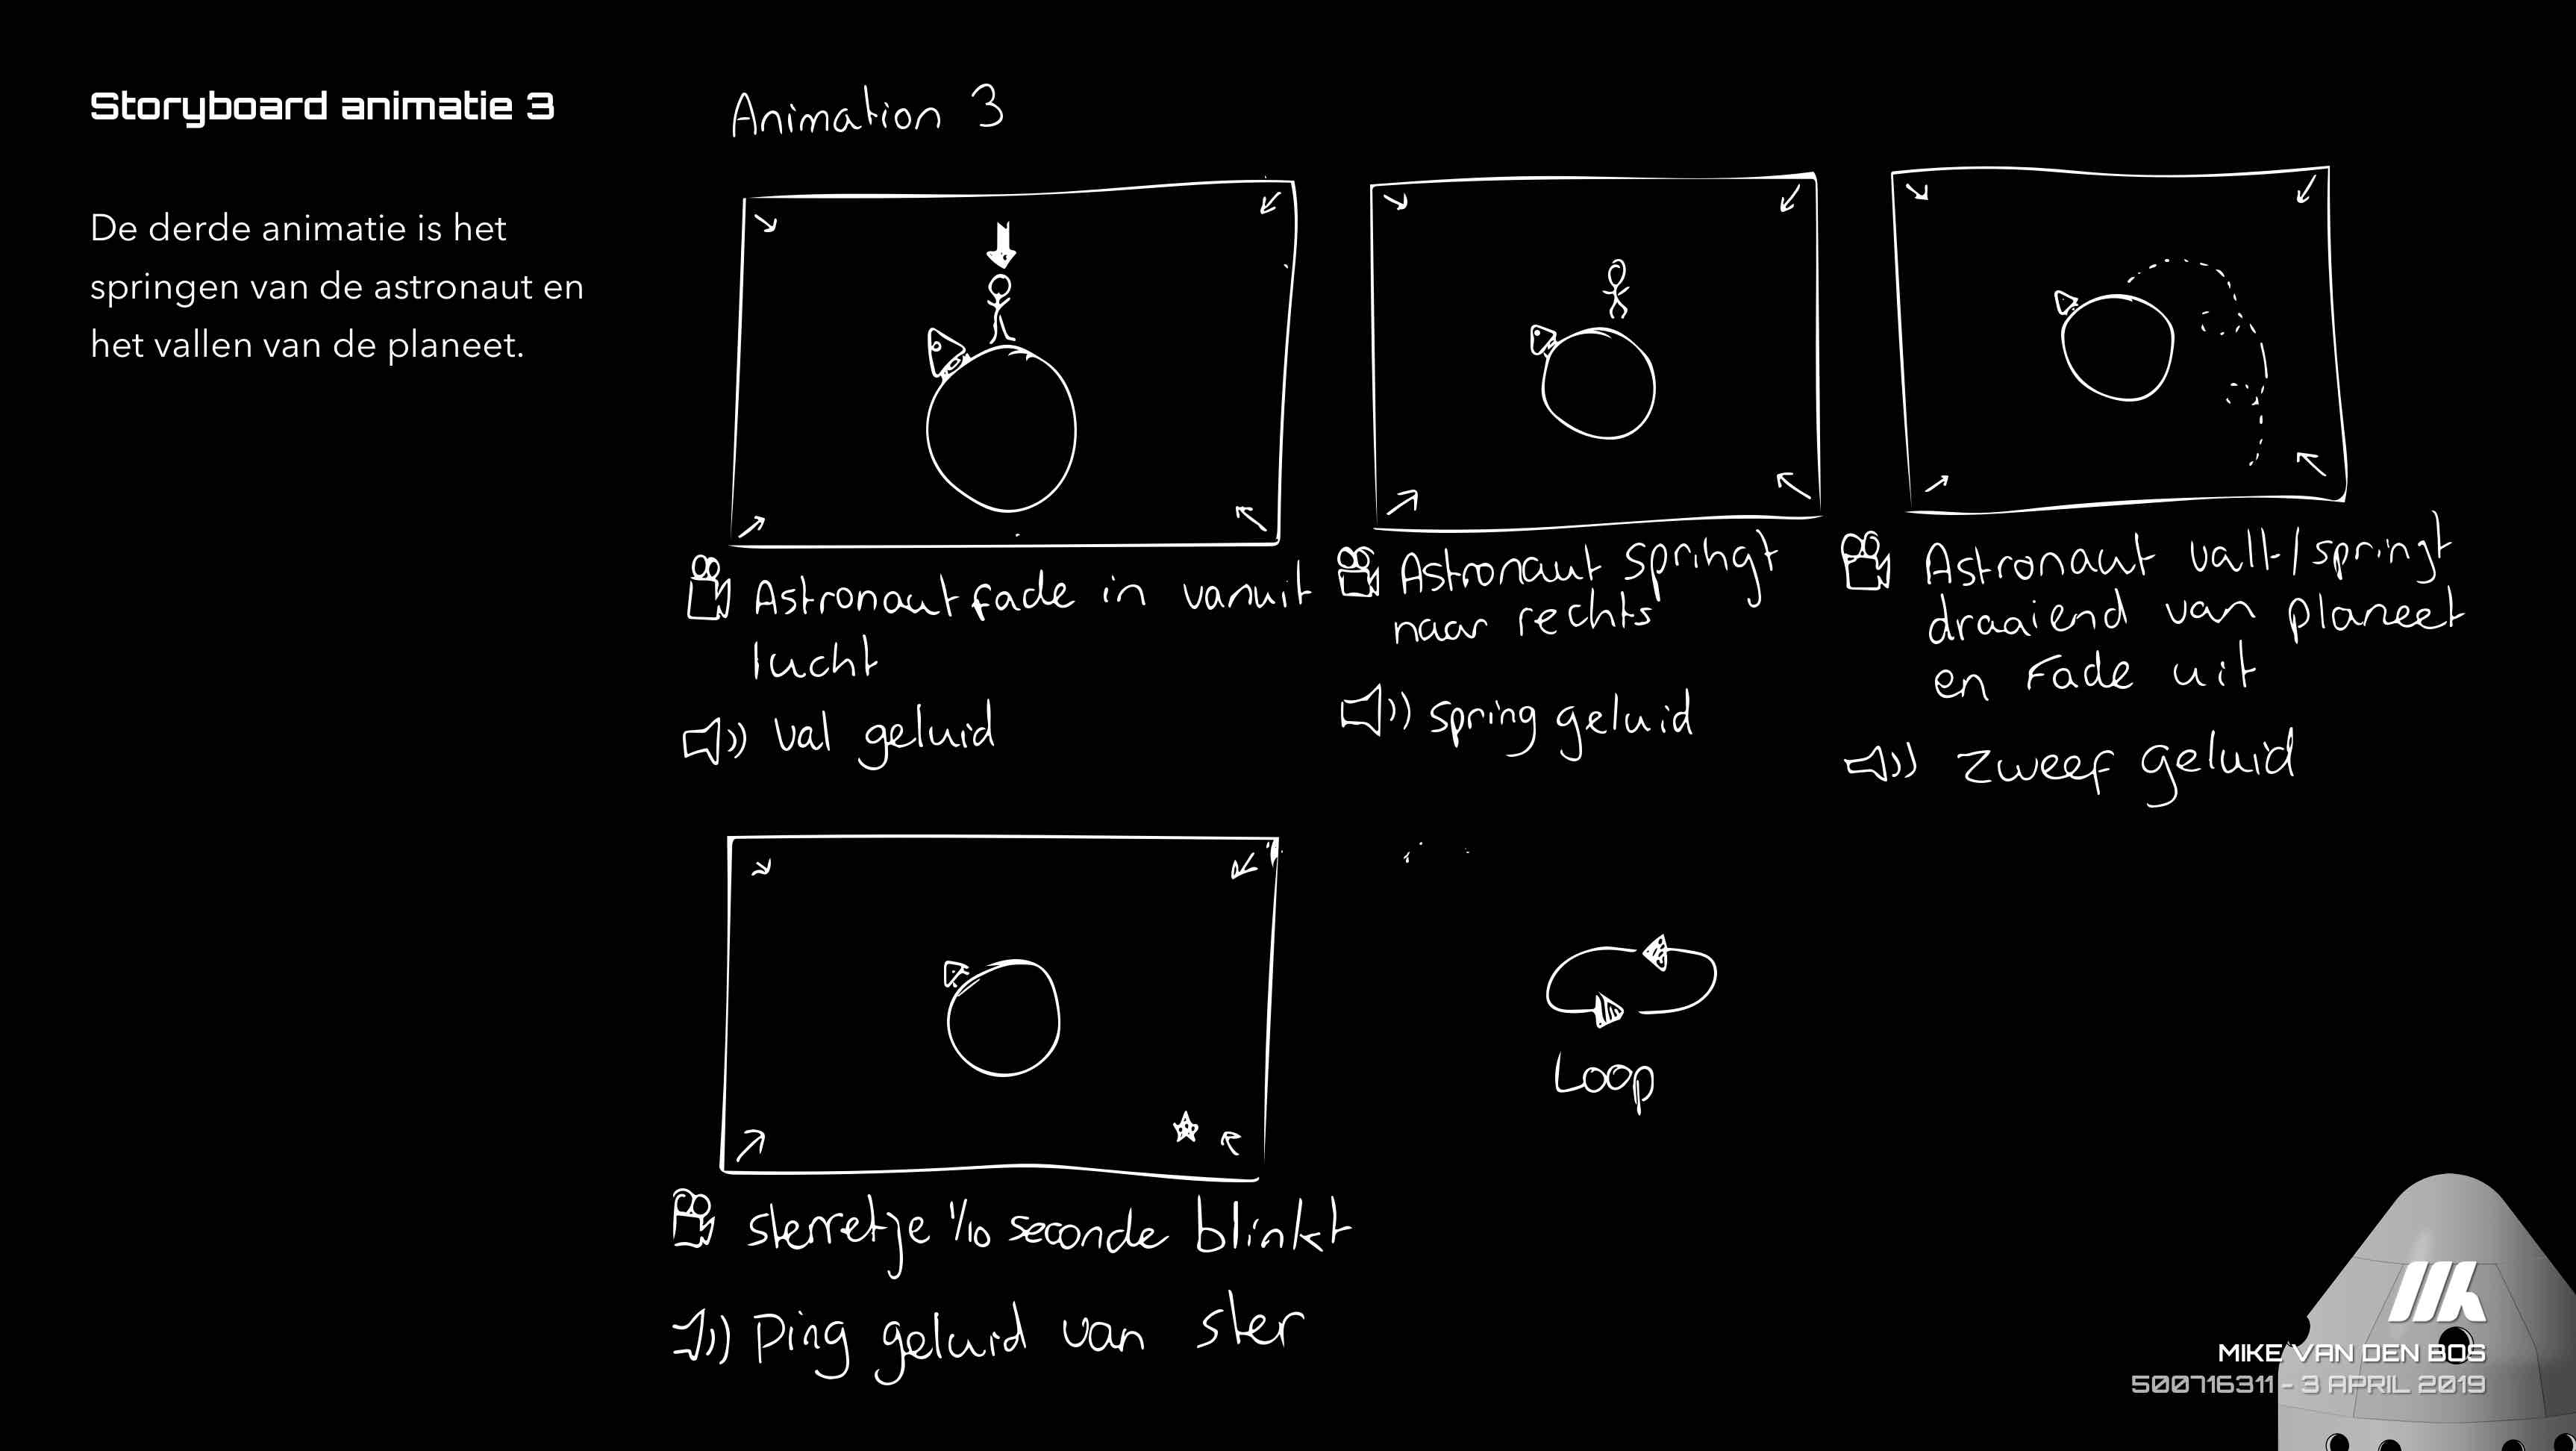 Storyboard animatie 3
De derde animatie is het
springen van de astronaut en
het vallen van de planeet.
Animation 3
Astronaut fade in vanuit
lucht
val geluid
Astronaut springt
naar rechts
spring geluid
Astronaut valt/springt
draaiend van planeet
en Fade uit
zweef geluid
sterretje 1/10 seconde blinkt
Ping geluid van ster
Loop
MIKE VAN DEN BOS
500716311 - 3 APRIL 2019